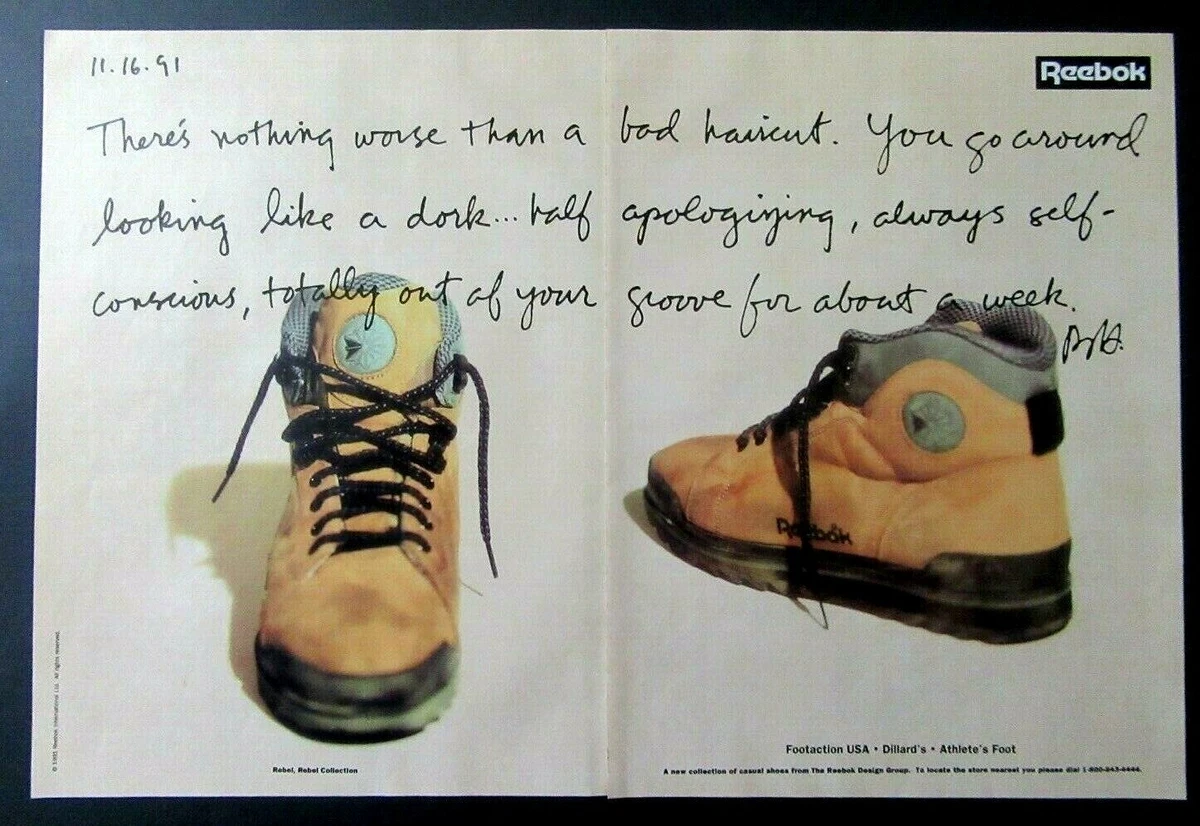 11.16.91
Reebok
There's nothing worse than a bad haircut. You go around
looking like a dork... half apologizing, always self-
conscious, totally out of your groove for about a week.
Reebok
Footaction USA • Dillard's • Athlete's Foot
Rebel, Rebel Collection
A new collection of casual shoes from The Reebok Design Group. To locate the store nearest you please dial
Reebok International Ltd. All rights reserved.